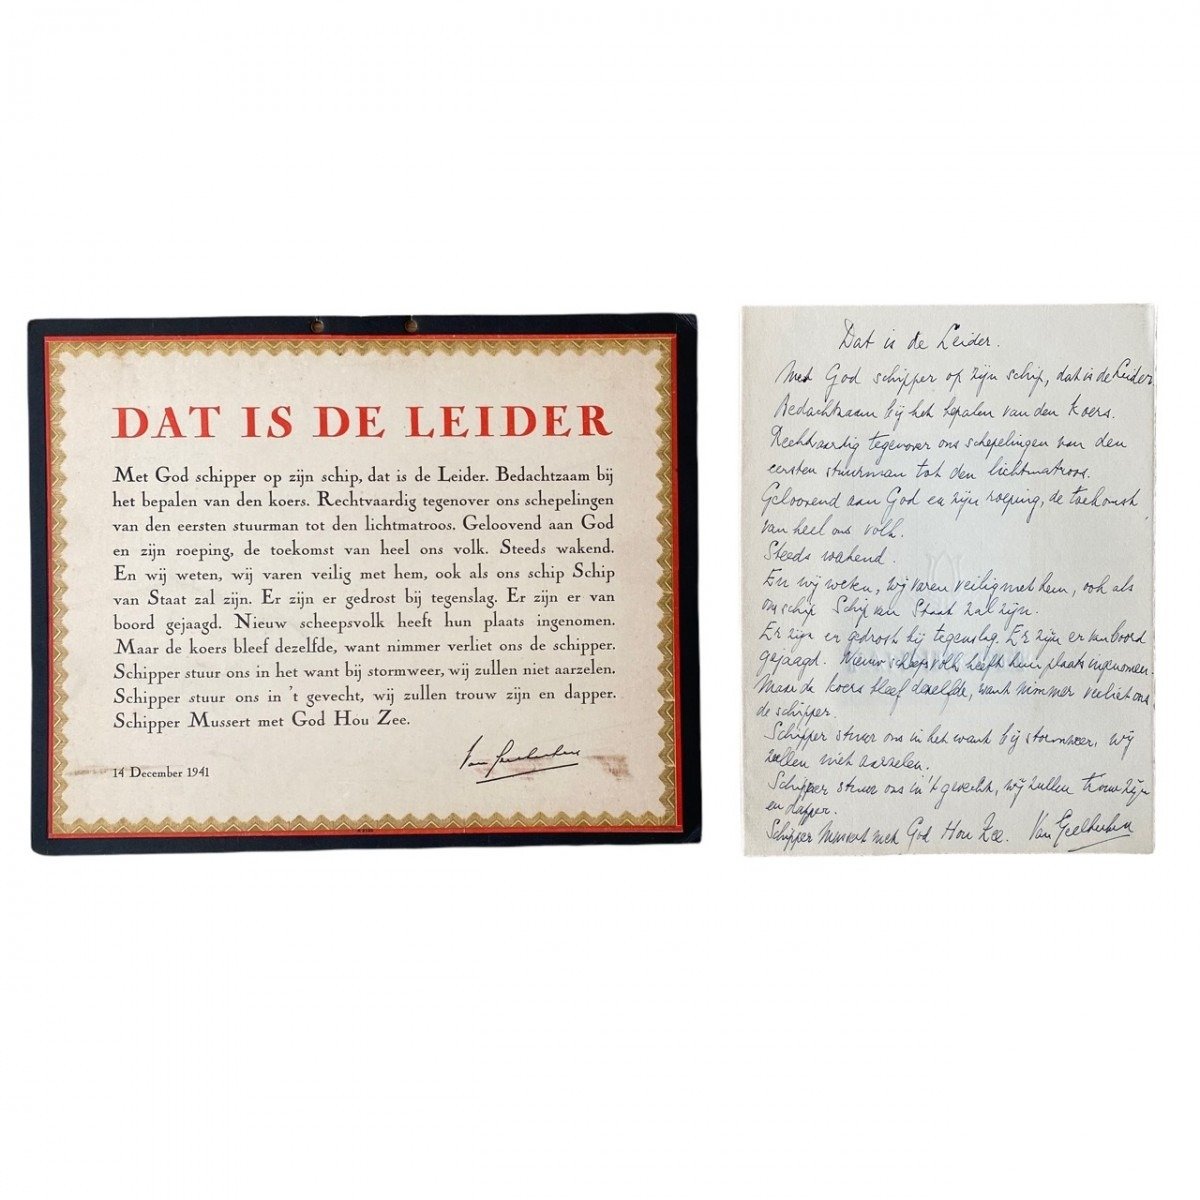 DAT IS DE LEIDER
Met God schipper op zijn schip, dat is de Leider. Bedachtzaam bij
het bepalen van den koers. Rechtvaardig tegenover ons schepelingen
van den eersten stuurman tot den lichtmatroos. Geloovend aan God
en zijn roeping, de toekomst van heel ons volk. Steeds wakend.
En wij weten, wij varen veilig met hem, ook als ons schip Schip
van Staat zal zijn. Er zijn er gedrost bij tegenslag. Er zijn er van
boord gejaagd. Nieuw scheepsvolk heeft hun plaats ingenomen.
Maar de koers bleef dezelfde, want nimmer verliet ons de schipper.
Schipper stuur ons in het want bij stormweer, wij zullen niet aarzelen.
Schipper stuur ons in 't gevecht, wij zullen trouw zijn en dapper.
Schipper Mussert met God Hou Zee.
Van Geelkerken
14 December 1941
Dat is de Leider.
Met God schipper op zijn schip, dat is de Leider
Bedachtzaam bij het bepalen van den koers.
Rechtvaardig tegenover ons schepelingen van den
eersten stuurman tot den lichtmatroos.
Geloovend aan God en zijn roeping, de toekomst
van heel ons volk.
Steeds wakend.
En wij weten, wij varen veilig met hem, ook als
ons schip Schip van Staat zal zijn.
Er zijn er gedrost bij tegenslag. Er zijn er van boord
gejaagd. Nieuw scheepsvolk heeft hun plaats ingenomen.
Maar de koers bleef dezelfde, want nimmer verliet ons
de schipper.
Schipper stuur ons in het want bij stormweer, wij
zullen niet aarzelen.
Schipper stuur ons in 't gevecht, wij zullen trouw zijn
en dapper.
Schipper Mussert met God Hou Zee. Van Geelkerken